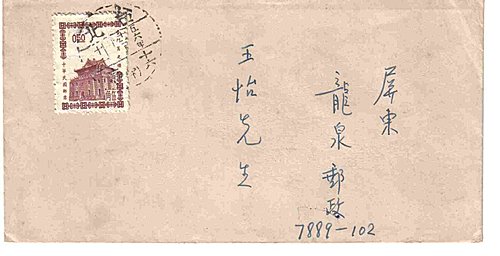 屏東
龍泉郵政
7889-102
王怡先生
中華民國郵票